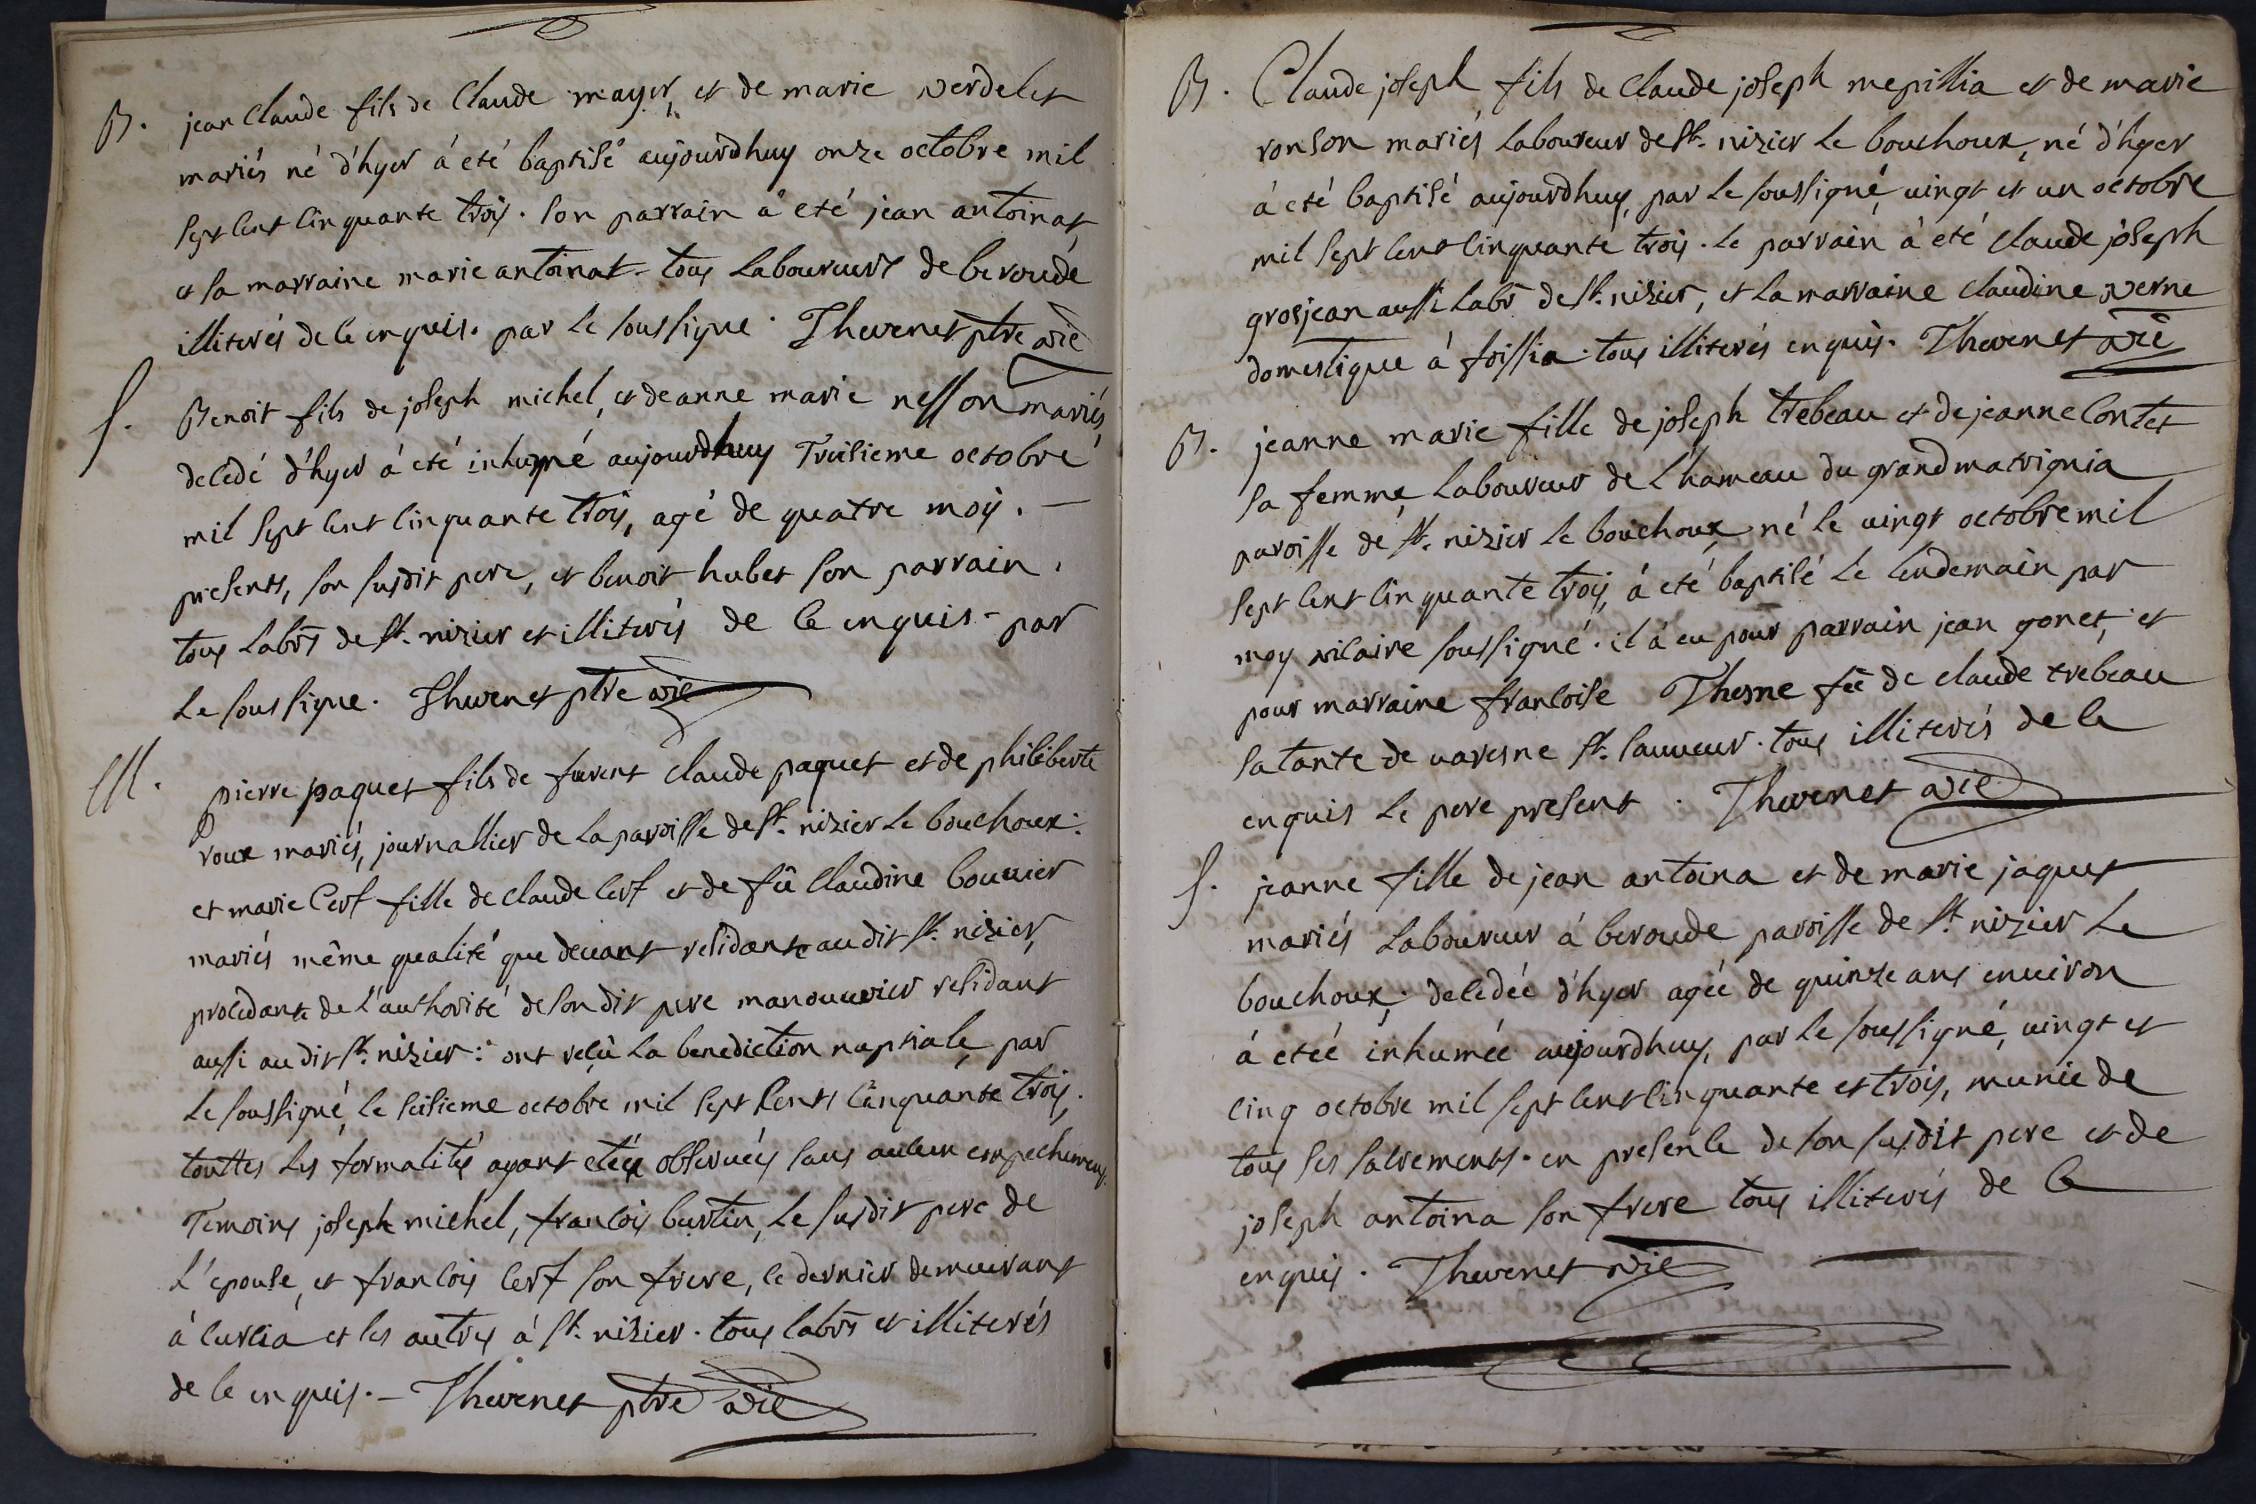 B. jean Claude fils de Claude mayer, et de marie verdelet
mariés né d'hyer á eté baptisé aujourdhuy onze octobre mil
sept cent cinquante trois. son parrain a eté jean antoinat
et sa marraine marie antoinat. tous laboureurs de beroude
illiterés de ce enquis. par le soussigne. Thevenet ptre vic
S. Benoit fils de joseph michel, et de anne marie nesson mariés
decedé d'hyer á eté inhumé aujourdhuy Treisieme octobre
mil sept cent cinquante trois, agé de quatre mois. —
presents, son susdit pere, et benoit hubet son parrain.
tous labrs de st. nizier et illiterés de ce enquis - par
le soussigne. Thevenet ptre vic
M. pierre paquet fils de furent Claude paquet et de philiberte
roux mariés, journallier de la paroisse de st. nizier le bouchoux:
et marie Cerf fille de claude Cerf et de fû Claudine bouuier
mariés même qualité que deuant residante audit st. nizier,
procedante de l'authorité de son dit pere manouurier residant
aussi audit st. nizier: ont reçû la benediction nuptiale, par
le soussigné, le seisieme octobre mil sept Cents Cinquante trois.
touttes les formalités ayant etéés obseruéés sans aucun empechement.
Temoins joseph michel, francois burtin, le susdit pere de
l'epouse, et francois cerf son frere, ce dernier demeurant
á curcia et les autres á st. nizier. tous labrs et illiterés
de ce enquis. — Thevenet ptre vic
B. Claude joseph fils de Claude joseph mepillia et de marie
ronson mariés laboureur de st. nizier le bouchoux, né d'hyer
á eté baptisé aujourdhuy, par le soussigné vingt et un octobre
mil sept cent cinquante trois. le parrain á eté claude joseph
grosjean aussi labr de st. nizier, et la marraine claudine verne
domestique á foissia. tous illiterés enquis. Thevenet vic
B. jeanne marie fille de joseph trebeau et de jeanne Contet
sa femme, laboureur de l'hameau du grand matrignia
paroisse de st. nizier le bouchoux, né le uingt octobre mil
sept cent cinquante trois, á eté baptisé le lendemain par
moy vicaire soussigné. il á eu pour parrain jean gonet, et
pour marraine francoise Thesne fe de claude trebeau
sa tante de uaresne st. sauueur. tous illiterés de ce
enquis le pere present. Thevenet vic
S. jeanne fille de jean antoina et de marie jaquet
mariés laboureur á beroude paroisse de st. nizier le
bouchoux, decedée d'hyer agée de quinze ans enuiron
á etéé inhumée aujourdhuy, par le soussigné, uingt et
cinq octobre mil sept cent cinquante et trois, munie de
tous ses sacrements. en presence de son susdit pere et de
joseph antoina son frere tous illiterés de ce
enquis. Thevenet vic